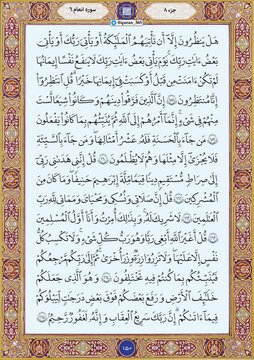 سوره انعام ۶
@quran_365
جزء ۸
هَلْ يَنظُرُونَ إِلَّا أَن تَأْتِيَهُمُ الْمَلَائِكَةُ أَوْ يَأْتِيَ رَبُّكَ أَوْ يَأْتِيَ
بَعْضُ آيَاتِ رَبِّكَ يَوْمَ يَأْتِي بَعْضُ آيَاتِ رَبِّكَ لَا يَنفَعُ نَفْسًا إِيمَانُهَا
لَمْ تَكُنْ آمَنَتْ مِن قَبْلُ أَوْ كَسَبَتْ فِي إِيمَانِهَا خَيْرًا قُلِ انتَظِرُوا
إِنَّا مُنتَظِرُونَ ۝۱۵۸ إِنَّ الَّذِينَ فَرَّقُوا دِينَهُمْ وَكَانُوا شِيَعًا لَّسْتَ
مِنْهُمْ فِي شَيْءٍ إِنَّمَا أَمْرُهُمْ إِلَى اللَّهِ ثُمَّ يُنَبِّئُهُم بِمَا كَانُوا يَفْعَلُونَ
۝۱۵۹ مَن جَاءَ بِالْحَسَنَةِ فَلَهُ عَشْرُ أَمْثَالِهَا وَمَن جَاءَ بِالسَّيِّئَةِ
فَلَا يُجْزَىٰ إِلَّا مِثْلَهَا وَهُمْ لَا يُظْلَمُونَ ۝۱۶۰ قُلْ إِنَّنِي هَدَانِي رَبِّي
إِلَىٰ صِرَاطٍ مُّسْتَقِيمٍ دِينًا قِيَمًا مِّلَّةَ إِبْرَاهِيمَ حَنِيفًا وَمَا كَانَ مِنَ
الْمُشْرِكِينَ ۝۱۶۱ قُلْ إِنَّ صَلَاتِي وَنُسُكِي وَمَحْيَايَ وَمَمَاتِي لِلَّهِ رَبِّ
الْعَالَمِينَ ۝۱۶۲ لَا شَرِيكَ لَهُ وَبِذَٰلِكَ أُمِرْتُ وَأَنَا أَوَّلُ الْمُسْلِمِينَ
۝۱۶۳ قُلْ أَغَيْرَ اللَّهِ أَبْغِي رَبًّا وَهُوَ رَبُّ كُلِّ شَيْءٍ وَلَا تَكْسِبُ كُلُّ
نَفْسٍ إِلَّا عَلَيْهَا وَلَا تَزِرُ وَازِرَةٌ وِزْرَ أُخْرَىٰ ثُمَّ إِلَىٰ رَبِّكُم مَّرْجِعُكُمْ
فَيُنَبِّئُكُم بِمَا كُنتُمْ فِيهِ تَخْتَلِفُونَ ۝۱۶۴ وَهُوَ الَّذِي جَعَلَكُمْ
خَلَائِفَ الْأَرْضِ وَرَفَعَ بَعْضَكُمْ فَوْقَ بَعْضٍ دَرَجَاتٍ لِّيَبْلُوَكُمْ
فِي مَا آتَاكُمْ إِنَّ رَبَّكَ سَرِيعُ الْعِقَابِ وَإِنَّهُ لَغَفُورٌ رَّحِيمٌ ۝۱۶۵
۱۵۰